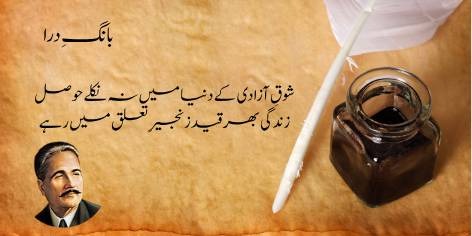 بانگِ درا
شوق آزادی کے دنیا میں نہ نکلے حوصلے
زندگی بھر قید زنجیر تعلق میں رہے